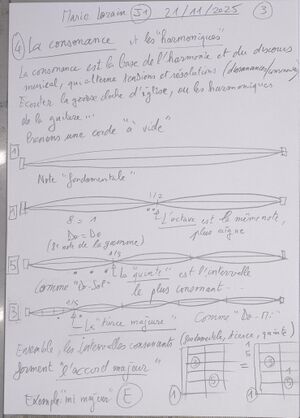 Mario Lozain J1 21/11/2025 3
4 La consonance et les "harmoniques"
La consonance est la base de l'harmonie et du discours
musical, qui alterne tensions et résolutions (dissonances/consonances)
Ecouter la grosse cloche d'église, ou les harmoniques
de la guitare...
Prenons une corde "à vide"
1
Note "fondamentale"
1/2
8
8 = 1
L'octave est la même note,
Do = Do
plus aigue
(8e note de la gamme)
1/3
5
La "quinte" est l'intervalle
Comme "Do-Sol"
le plus consonant...
3
1/5
La "tierce majeure"
Comme "Do-Mi"
Ensemble, les intervalles consonants
(fondamentale, tierce, quinte)
forment "l'accord majeur"
1
5
3
=
1
Exemple "mi majeur" E